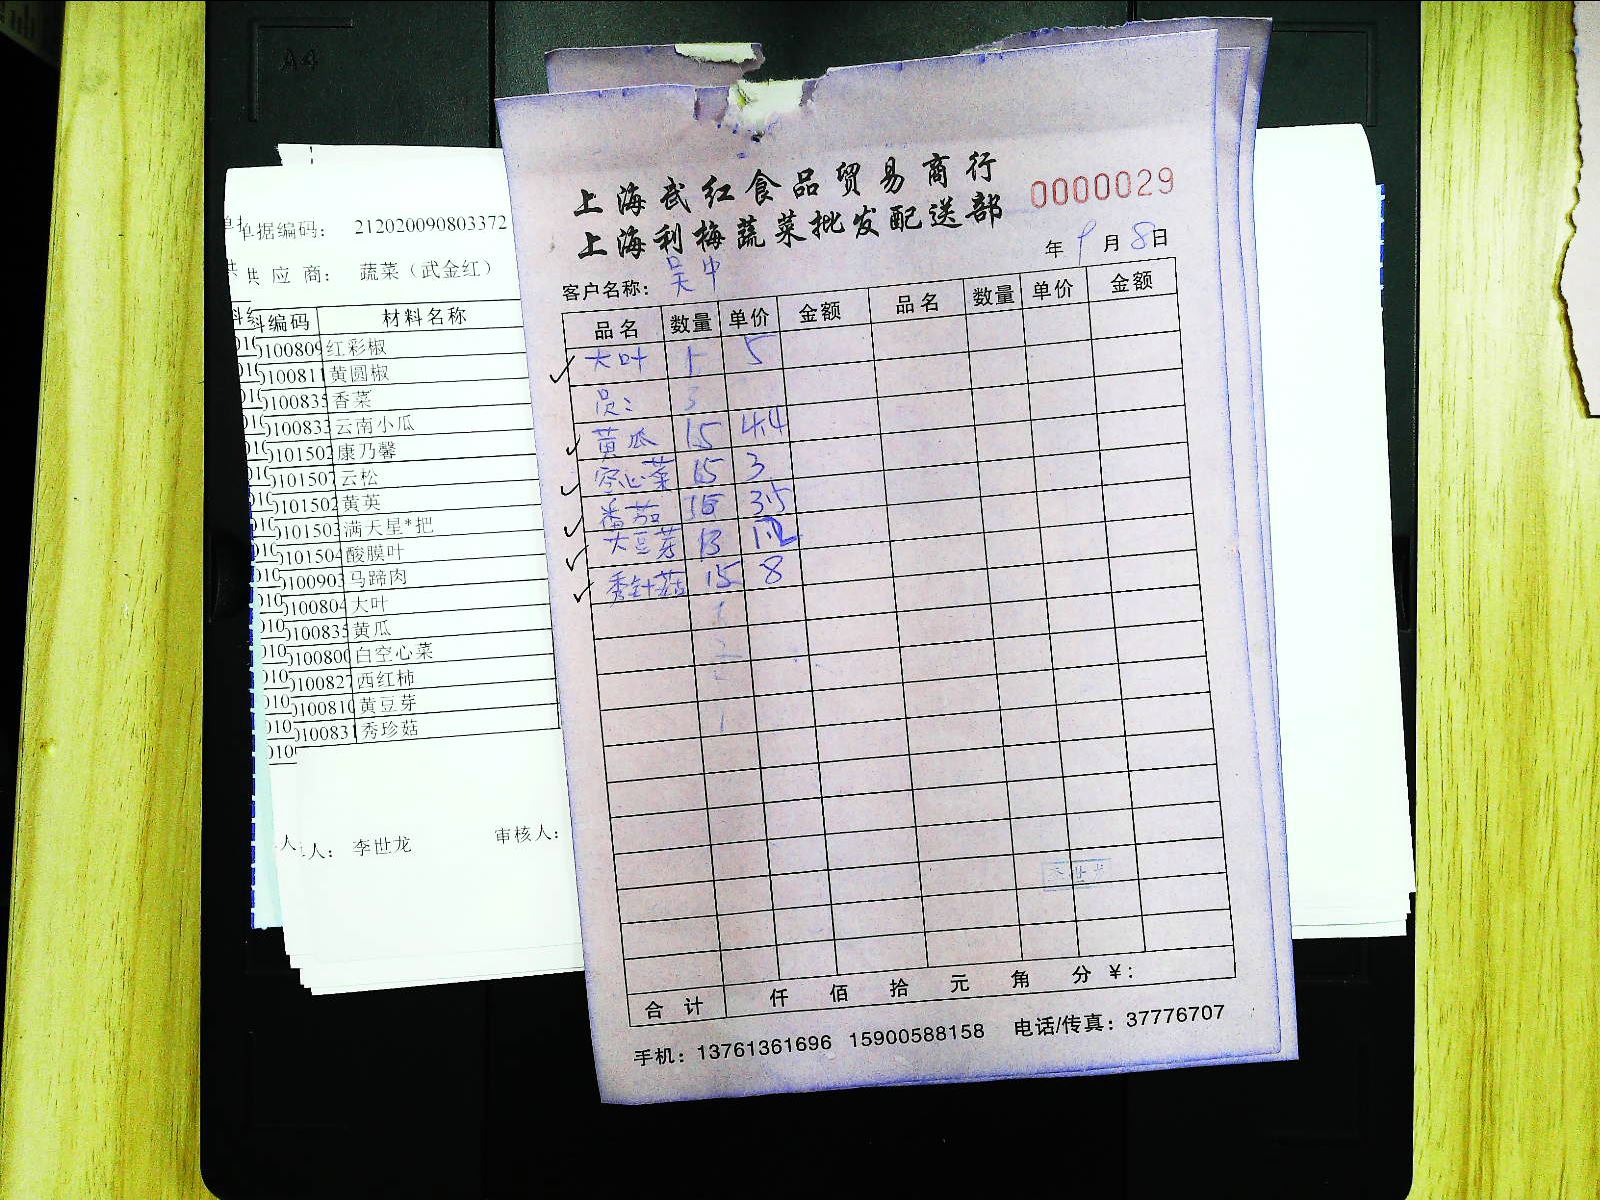 A4
单据编码： 212020090803372
供 应 商： 蔬菜（武金红）
料编码 材料名称
0100809 红彩椒
010081 黄圆椒
010083 香菜
010083 云南小瓜
010150 康乃馨
010150 云松
010150 黄英
010150 满天星*把
010150 酸膜叶
010090 马蹄肉
010080 大叶
010083 黄瓜
010080 白空心菜
010082 西红柿
010081 黄豆芽
010083 秀珍菇
人： 李世龙 审核人：
上海武红食品贸易商行
上海利梅蔬菜批发配送部
0000029
年 9 月 8 日
客户名称： 吴中
品名 数量 单价 金额 品名 数量 单价 金额
大叶 1 5
黄瓜 15 4.4
空心菜 15 3
番茄 15 3.5
大豆芽 13 1.2
秀针菇 15 8
合 计 仟 佰 拾 元 角 分 ￥：
手机：13761361696 15900588158 电话/传真：37776707